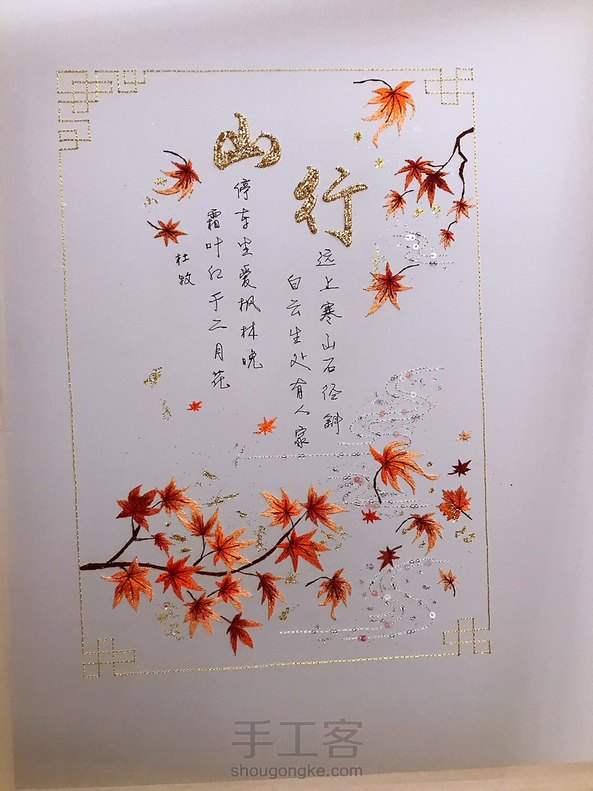 山行
远上寒山石径斜
白云生处有人家
停车坐爱枫林晚
霜叶红于二月花
杜牧
手工客
shougongke.com